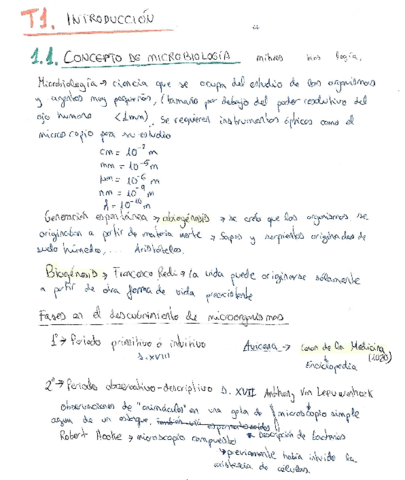 T1. INTRODUCCIÓN
1.1. CONCEPTO DE MICROBIOLOGÍA mikros bios logía,
Microbiología → ciencia que se ocupa del estudio de los organismos
y agentes muy pequeños, (tamaño por debajo del poder resolutivo del
ojo humano <1mm). Se requieren instrumentos ópticos como el
microscopio para su estudio
cm = 10⁻² m
mm = 10⁻³ m
µm = 10⁻⁶ m
nm = 10⁻⁹ m
Å = 10⁻¹⁰ m
Generación espontánea → abiogénesis → se creía que los organismos se
originaban a partir de materia inerte → Sapos y serpientes originados de
suelo húmedo,... Aristóteles.
Biogénesis → Francesco Redi → la vida puede originarse solamente
a partir de otra forma de vida preexistente
Fases en el descubrimiento de microorganismos
1º → Periodo primitivo o intuitivo
S. XVIII
Avicena → Canon de la Medicina
(1020)
Enciclopedia
2º → Periodo observativo-descriptivo S. XVII Anthony Van Leeuwenhoek
observaciones de "animáculos" en una gota de microscopio simple
agua de un estanque,
Descripción de bacterias
Robert Hooke → microscopio compuesto
previamente había intuido la
existencia de células.